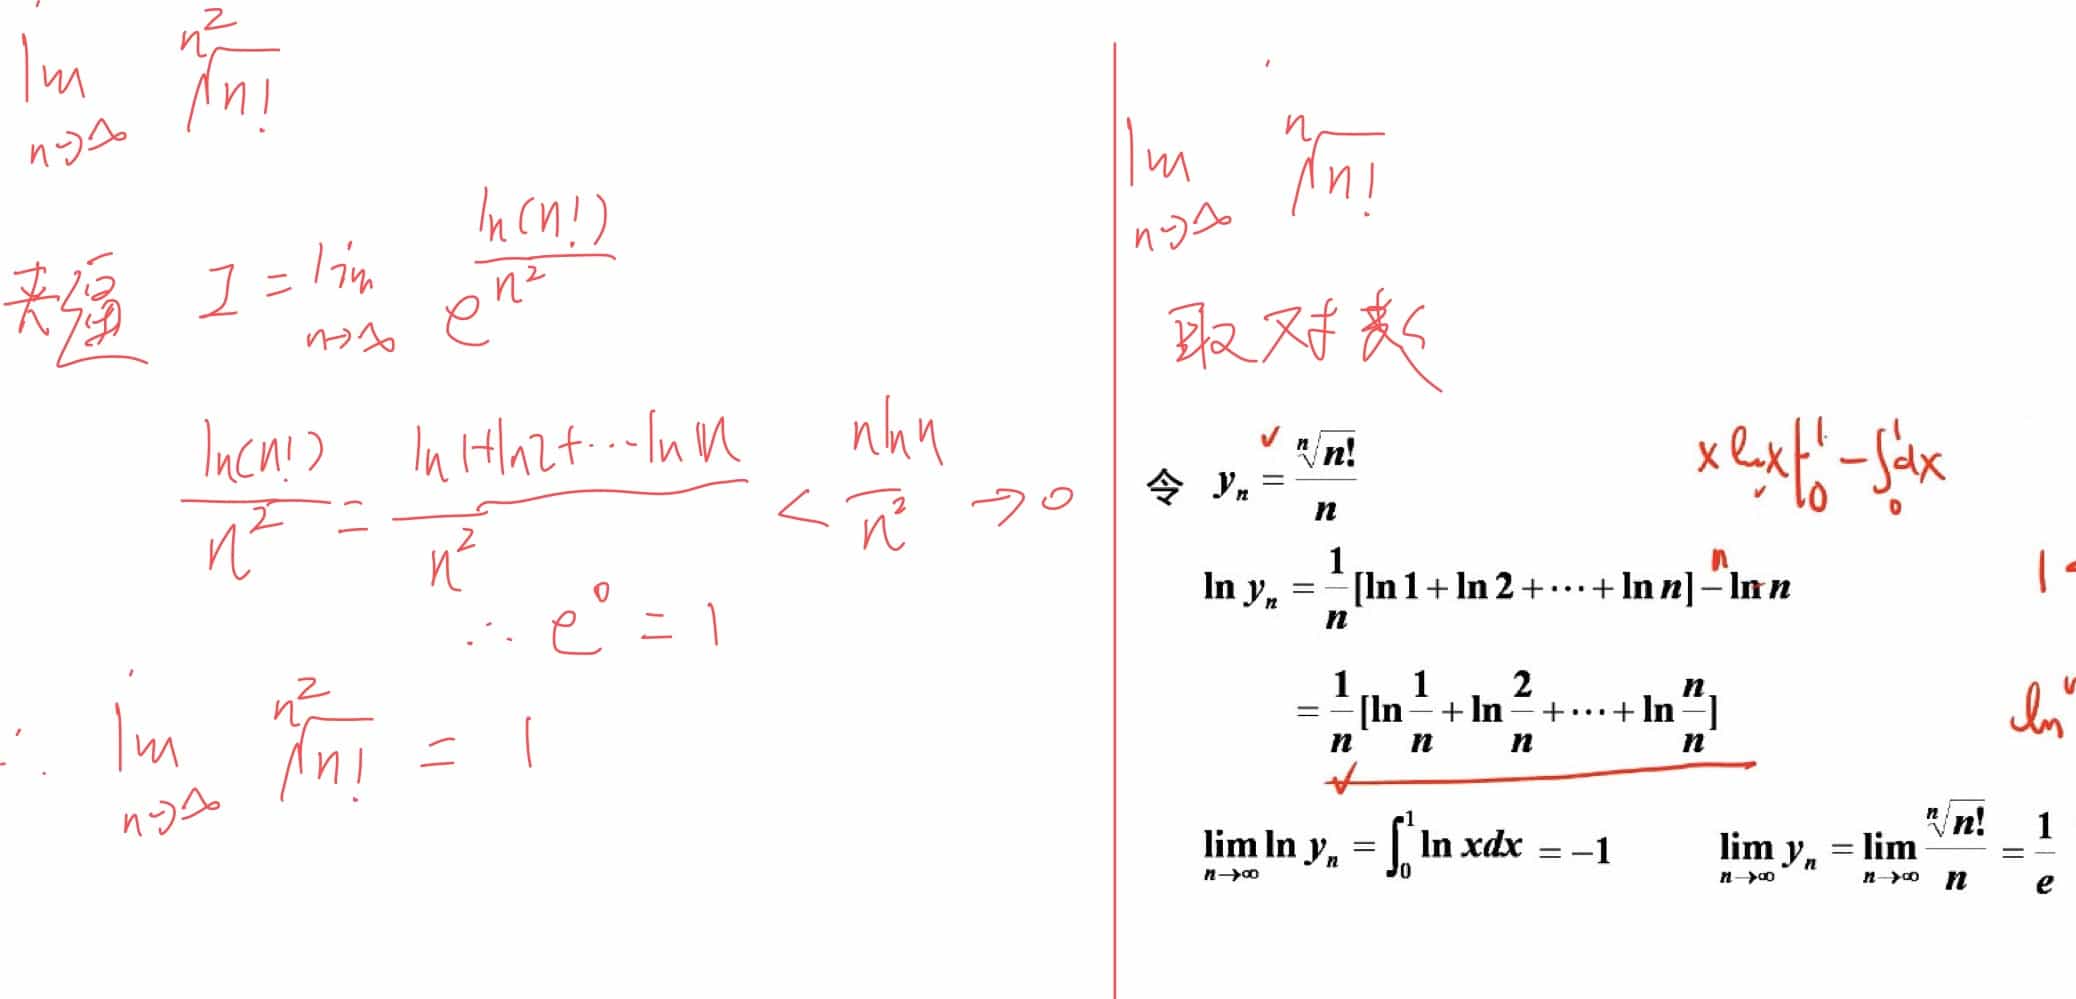 lim n→∞ ⁿ²√n!
夹逼 I = lim n→∞ e^(ln(n!)/n²)
ln(n!)/n² = (ln1+ln2+···ln n)/n² < nlnn/n² → 0
∴ e⁰ = 1
∴ lim n→∞ ⁿ²√n! = 1
lim n→∞ ⁿ√n!
取对数
令 yₙ = ⁿ√n!/n
xlnx|₀¹ - ∫₀¹dx
ln yₙ = 1/n [ln 1 + ln 2 + ··· + ln n] - ln n
n
1
= 1/n [ln 1/n + ln 2/n + ··· + ln n/n]
ln
lim n→∞ ln yₙ = ∫₀¹ ln xdx = -1
lim n→∞ yₙ = lim n→∞ ⁿ√n!/n = 1/e